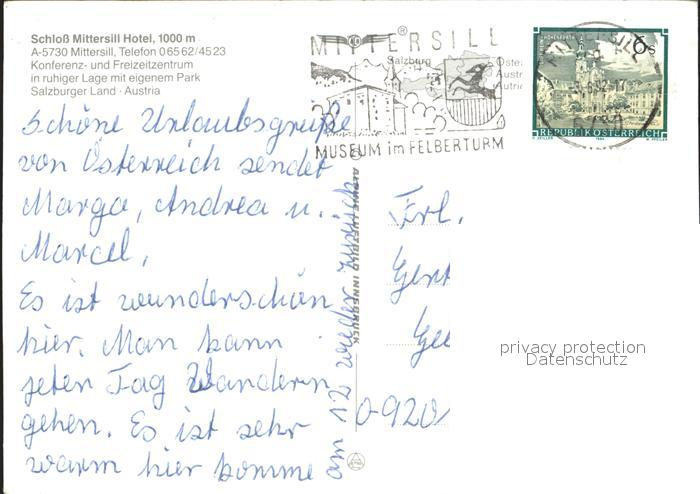 Schloß Mittersill Hotel, 1000 m
A-5730 Mittersill, Telefon 0 65 62/45 23
Konferenz- und Freizeitzentrum
in ruhiger Lage mit eigenem Park
Salzburger Land · Austria
MITTERSILL
Salzburg
MUSEUM im FELBERTURM
6 S
REPUBLIK ÖSTERREICH
Schöne Urlaubsgrüße
von Österreich sendet
Marga, Andrea u.
Marcel,
Es ist wunderschön
hier. Man kann
jeten Tag Wandern
gehen. Es ist sehr
warm hier komme
am 12 wieder zurück
ALPINE LUFTBILD INNSBRUCK
Frl.
Gert
Ge
0-920
privacy protection
Datenschutz